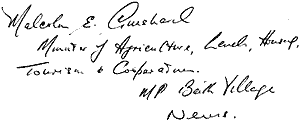 Malcolm E. Guishard
Minister of Agriculture, Lands, Housing,
Tourism & Cooperatives.
MP Bath Village
Nevis.